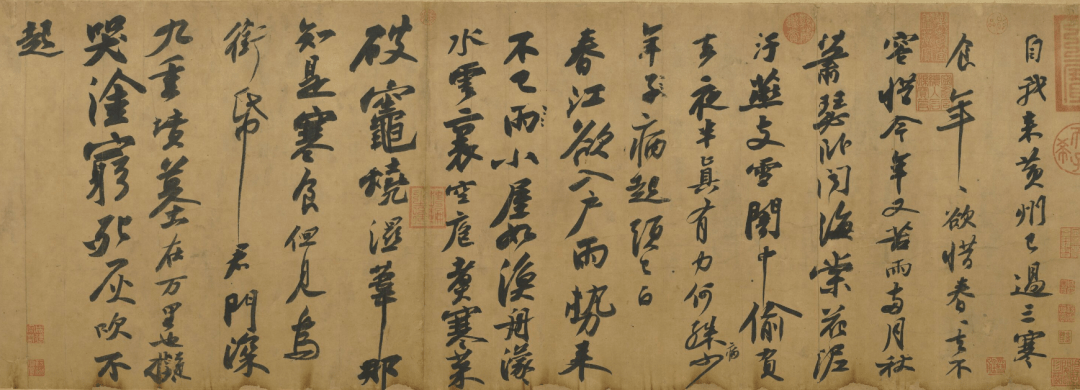 自我来黄州已過三寒
食年〻欲惜春〻去不
容惜今年又苦雨兩月秋
蕭瑟卧聞海棠花泥
汙燕支雪闇中偷負
去夜半真有力何殊少病
年子病起頭已白
春江欲入户雨勢来
不已雨小屋如漁舟濛〻
水雲裏空庖煮寒菜
破竈燒濕葦那
知是寒食但見烏
銜帋君門深
九重墳墓在万里也擬
哭塗窮死灰吹不
起